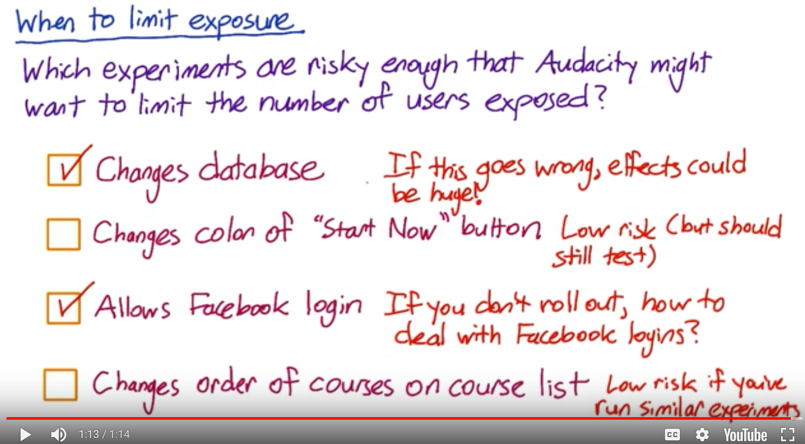 When to limit exposure
Which experiments are risky enough that Audacity might
want to limit the number of users exposed?
Changes database
If this goes wrong, effects could
be huge!
Changes color of "Start Now" button
Low risk (but should
still test)
Allows Facebook login
If you don't roll out, how to
deal with Facebook logins?
Changes order of courses on course list
Low risk if you've
run similar experiments
1:13 / 1:14
CC
YouTube